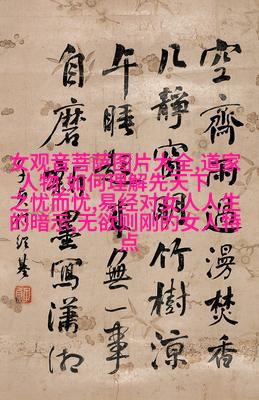 女观音菩萨图片大全,道家
人物,如何理解先天下
之忧而忧,易经对女人人生
的暗示,无欲则刚的女人特
点
空齋雨過漫焚香
几靜窗開竹樹涼
午睡無一事
自磨墨寫瀟湘